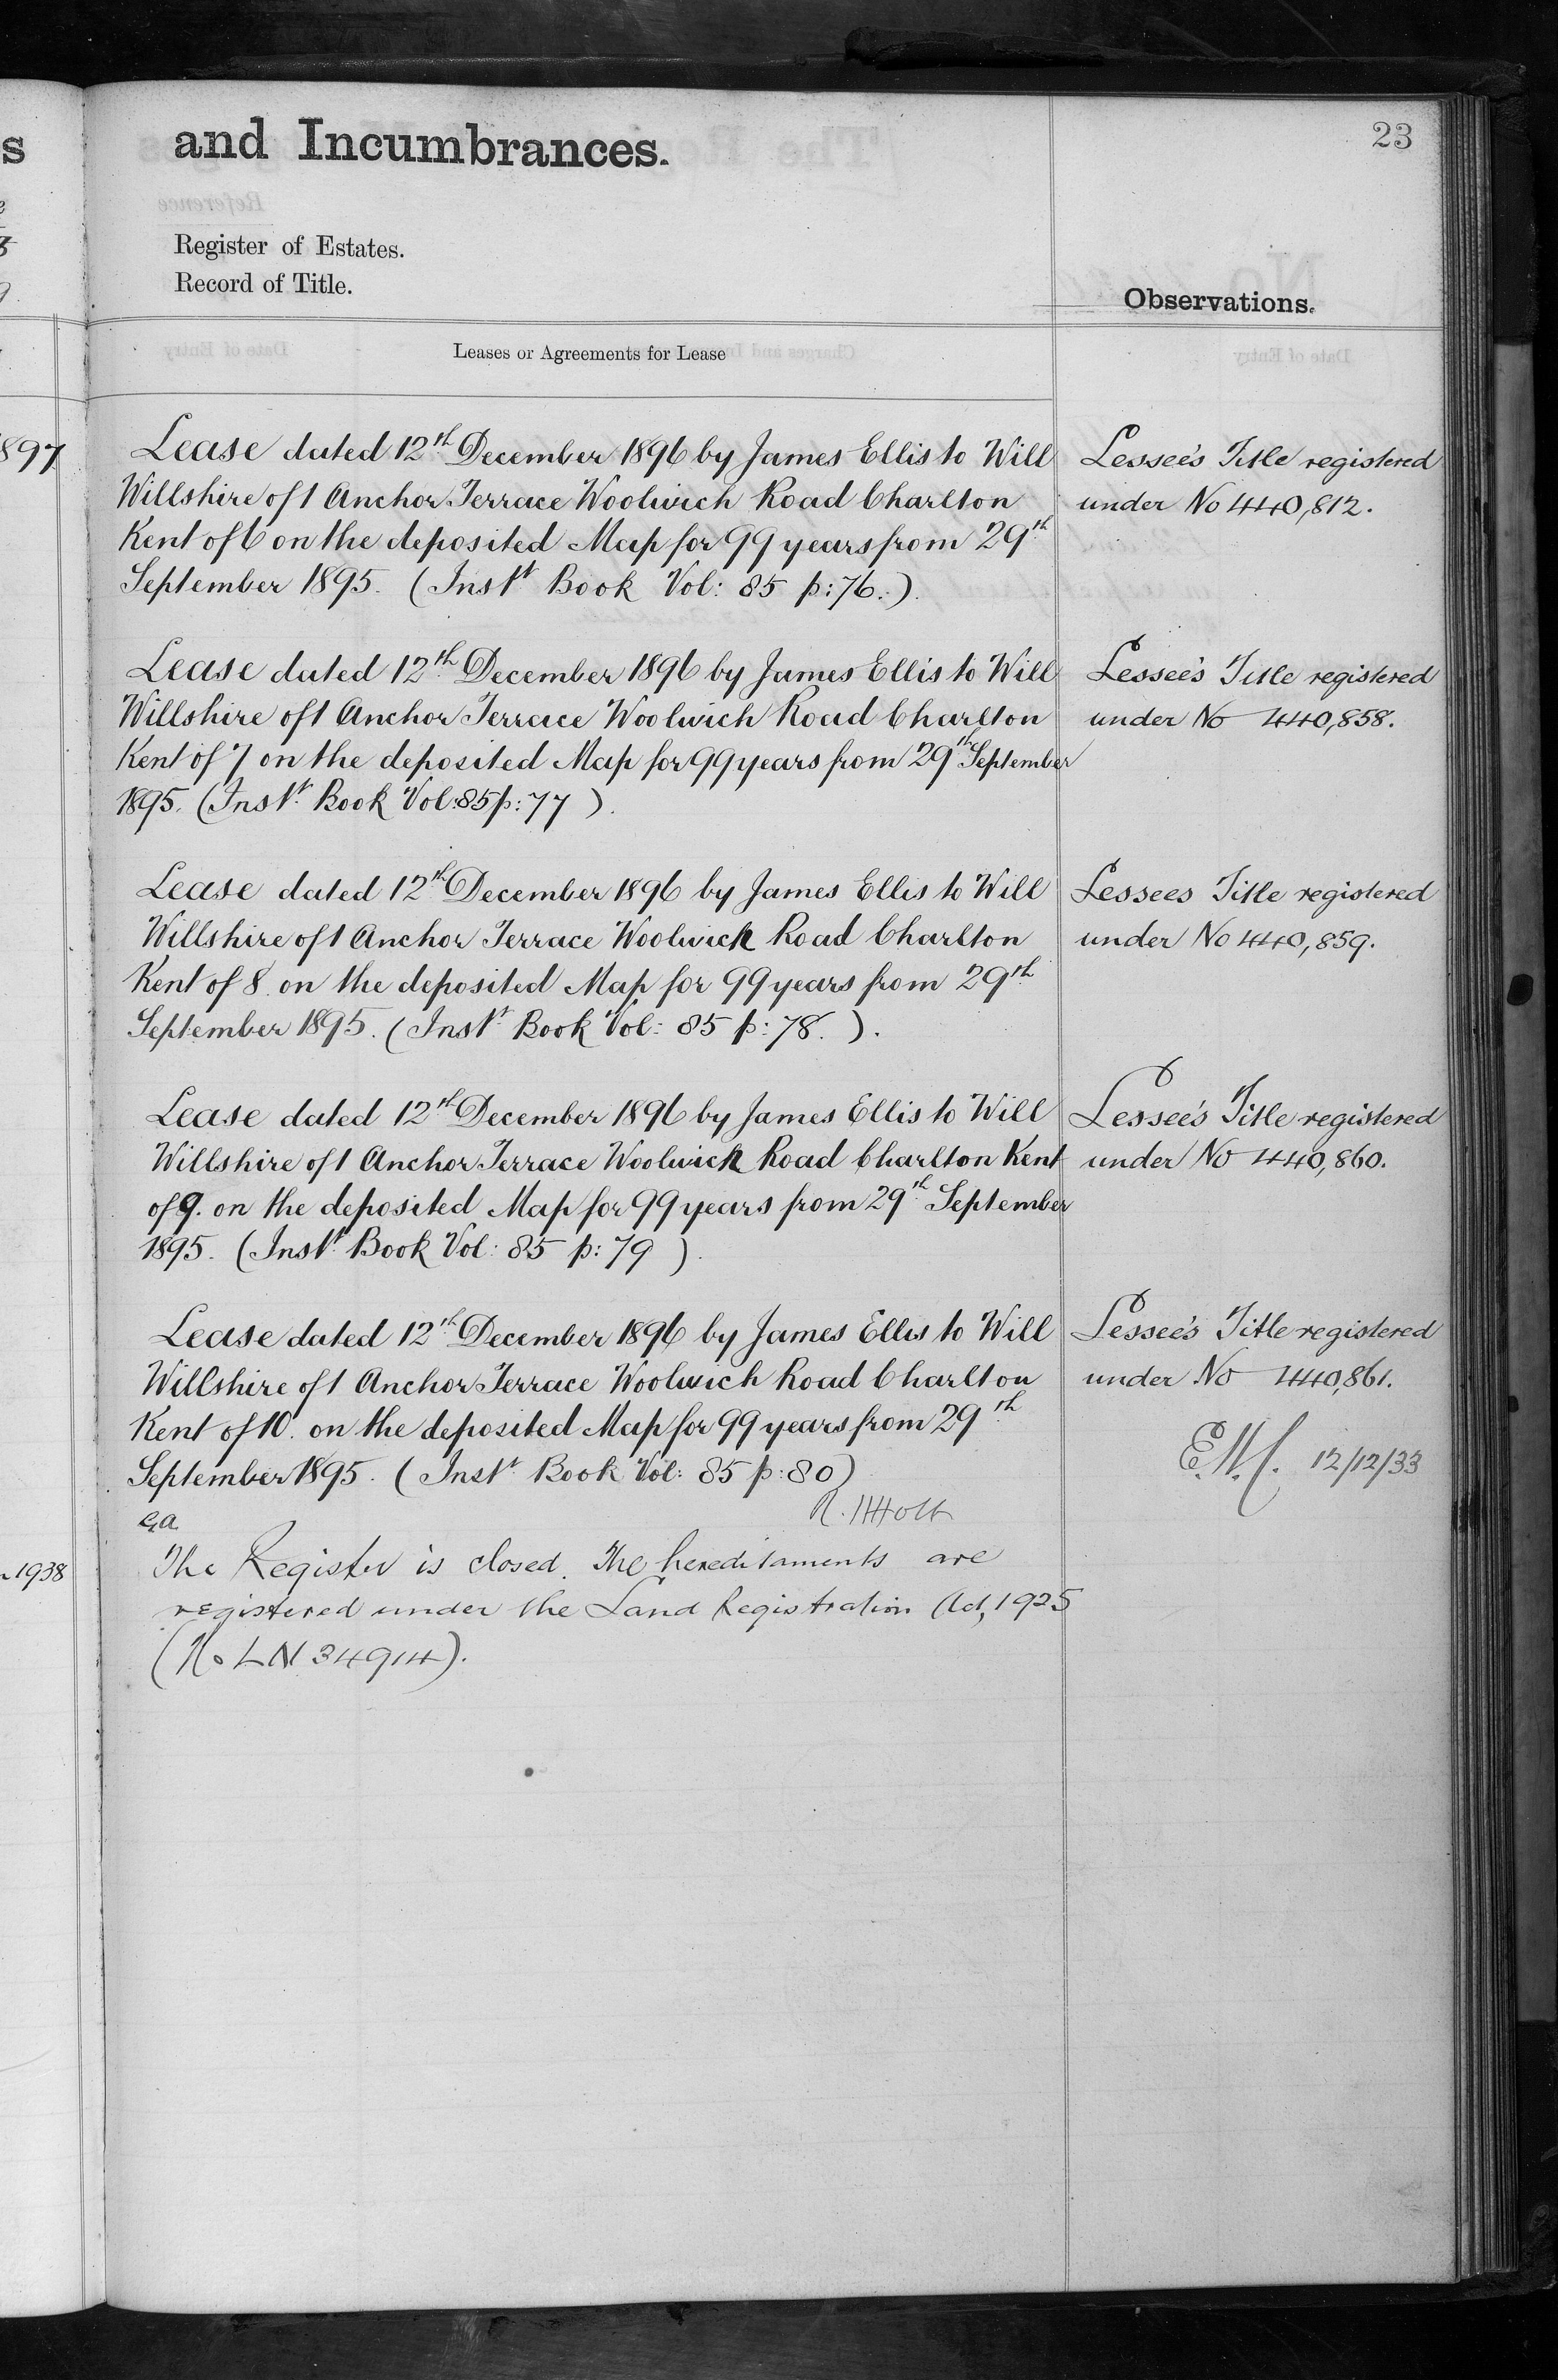 and Incumbrances.
23
Register of Estates.
Record of Title.
Observations.
Leases or Agreements for Lease
897
Lease dated 12th December 1896 by James Ellis to Will
Willshire of 1 Anchor Terrace Woolwich Road Charlton
Kent of 6 on the deposited Map for 99 years from 29th
September 1895. (Instt Book Vol: 85 p: 76.).
Lessee's Title registered
under No 440,812.
Lease dated 12th December 1896 by James Ellis to Will
Willshire of 1 Anchor Terrace Woolwich Road Charlton
Kent of 7 on the deposited Map for 99 years from 29th September
1895. (Instt Book Vol: 85 p: 77 ).
Lessee's Title registered
under No 440,858.
Lease dated 12th December 1896 by James Ellis to Will
Willshire of 1 Anchor Terrace Woolwich Road Charlton
Kent of 8. on the deposited Map for 99 years from 29th
September 1895. (Instt Book Vol: 85 p: 78. ).
Lessees Title registered
under No 440,859.
Lease dated 12th December 1896 by James Ellis to Will
Willshire of 1 Anchor Terrace Woolwich Road Charlton Kent
of 9. on the deposited Map for 99 years from 29th September
1895. (Instt Book Vol: 85 p: 79 ).
Lessee's Title registered
under No 440,860.
Lease dated 12th December 1896 by James Ellis to Will
Willshire of 1 Anchor Terrace Woolwich Road Charlton
Kent of 10. on the deposited Map for 99 years from 29th
September 1895. (Instt Book Vol: 85 p: 80)
Lessee's Title registered
under No 440,861.
12/12/33
1938
The Register is closed. The hereditaments are
registered under the Land Registration Act, 1925
(No LN 34914).